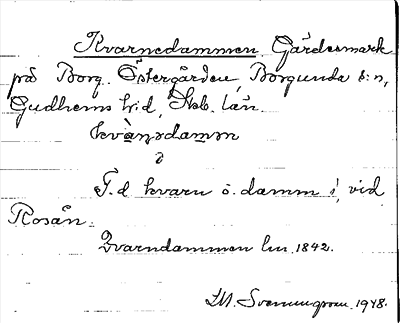 Kvarnedammen Gärdesmark
på Borg. Östergården, Borgunda s:n,
Gudhems h:d, Skb. län.
kvànədamm
F.d kvarn o. damm i, vid
Rosån.
Qvarndammen lm. 1842.
1948.